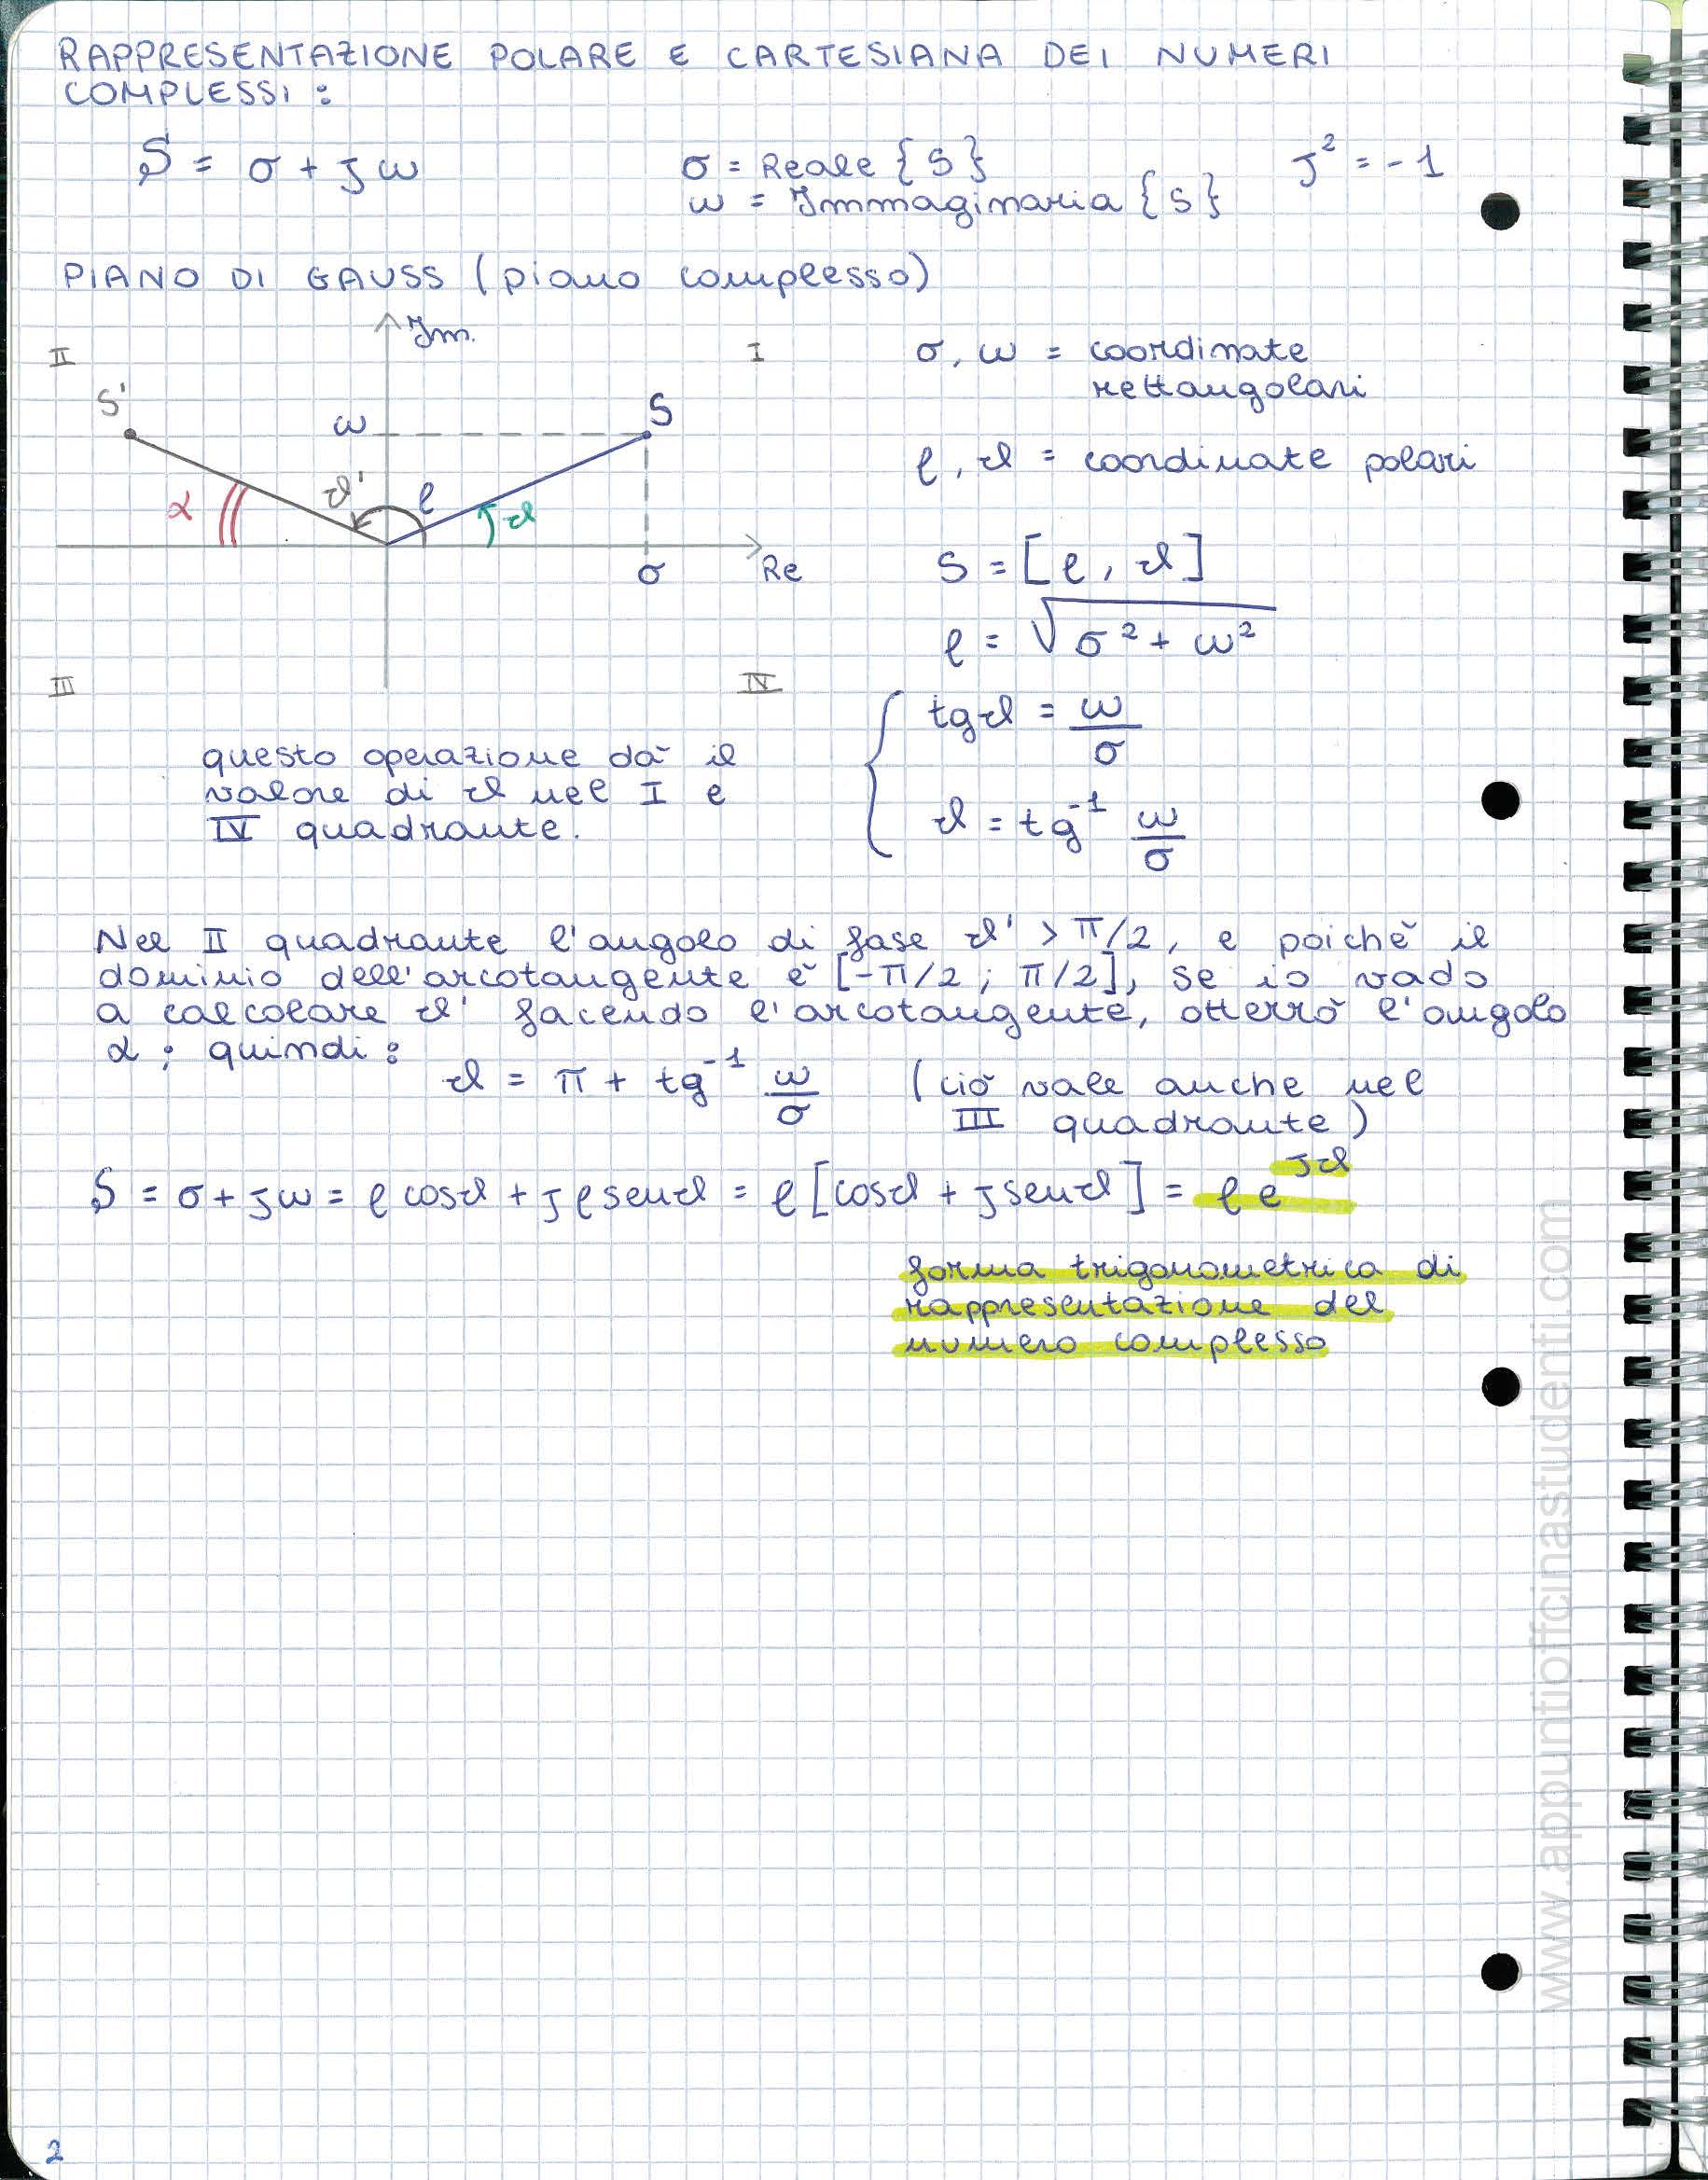 RAPPRESENTAZIONE POLARE E CARTESIANA DEI NUMERI
COMPLESSI:
S = σ + jω
σ = Reale {S}
ω = Immaginaria {S}
j² = -1
PIANO DI GAUSS (piano complesso)
Im.
II
I
S'
ω
S
α
ϑ'
ρ
ϑ
σ
Re
III
IV
σ, ω = coordinate
rettangolari
ρ, ϑ = coordinate polari
S = [ρ, ϑ]
ρ = √(σ² + ω²)
tgϑ = ω/σ
ϑ = tg⁻¹ ω/σ
questo operazione dà il
valore di ϑ nel I e
IV quadrante.
Nel II quadrante l'angolo di fase ϑ' > π/2, e poichè il
dominio dell'arcotangente è [-π/2 ; π/2], se io vado
a calcolare ϑ' facendo l'arcotangente, otterrò l'angolo
α ; quindi:
ϑ = π + tg⁻¹ ω/σ (ciò vale anche nel
III quadrante)
S = σ + jω = ρ cosϑ + jρ senϑ = ρ [cosϑ + j senϑ] = ρ e^jϑ
forma trigonometrica di
rappresentazione del
numero complesso
www.appuntioffcinastudenti.com
2